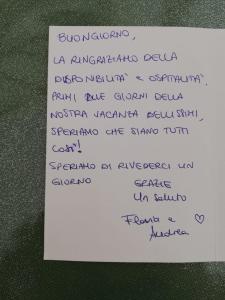 BUONGIORNO,
LA RINGRAZIAMO DELLA
DISPONIBILITA' E OSPITALITA'.
PRIMI DUE GIORNI DELLA
NOSTRA VACANZA BELLISSIMI,
SPERIAMO CHE SIANO TUTTI
COSÌ!
SPERIAMO DI RIVEDERCI UN
GIORNO
GRAZIE
Un saluto
Flavia e
Andrea